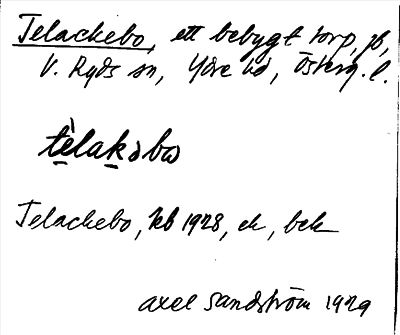 Telackebo, ett bebyggt torp, jb,
V. Ryds sn, Ydre hd, Österg. l.
tèlakəbω
Telackebo, kb 1928, ek, bek
Axel Sandström 1929